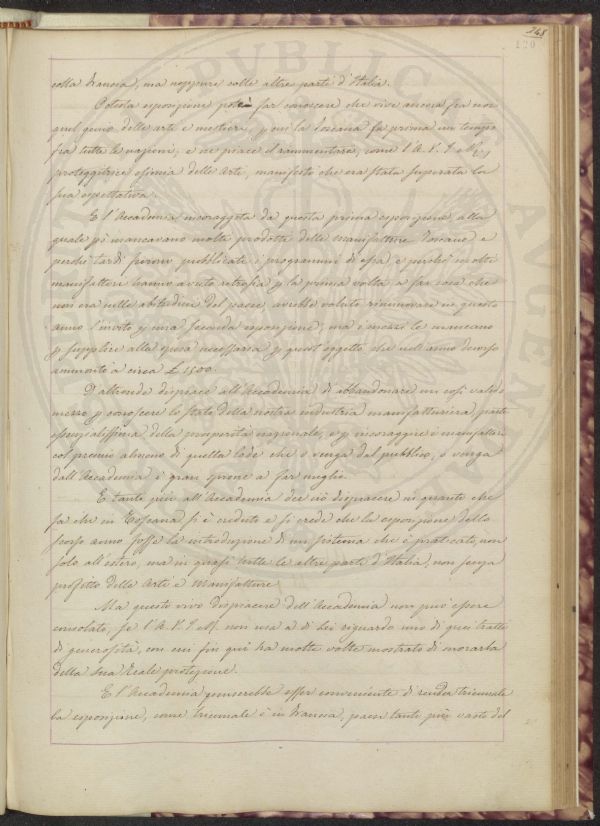 248
120
colla Francia, ma neppure colle altre parti d'Italia.
Potesta esposizione potè far conoscere che vive ancora fra noi
quel genio delle arti e mestieri, p cui la Toscana fu prima un tempo
fra tutte le nazioni; e ne piace il rammentare, come l'A. V. I. e R.,
proteggitrice esimia delle Arti, manifestò che era stata superata la
sua espettativa.
E l'Accademia incoraggita da questa prima esposizione, alla
quale pò mancavano molti prodotti delle manifatture Toscane, e
perchè tardi furono pubblicati i programmi di essa, e perchè molti
manifattori hanno avuto retrosia p la prima volta, a far cosa che
non era nelle abitudini del paese, avrebbe voluto rinnuovare in questo
anno l'invito p una seconda esposizione; ma i mezzi le mancano
p supplire alla spesa necessaria p quest'oggetto, che nell'anno decorso
ammontò a circa £ 1500.
D'altronde dispiace all'Accademia di abbandonare un così valido
mezzo p conoscere lo stato della nostra industria manifatturiera, parte
essenzialissima della prosperità nazionale, e p incoraggire i manifattori
col premio almeno di quella lode che o venga dal pubblico, o venga
dall'Accademia è gran sprone a far meglio.
E tanto più all'Accademia dee ciò dispiacere in quanto che
sa che in Toscana si è creduto e si crede che la esposizione dello
scorso anno fosse la introduzione di un sistema che è praticato, non
solo all'estero, ma in quasi tutte le altre parti d'Italia, non senza
profitto delle Arti e Manifatture.
Ma questo vivo dispiacere dell'Accademia non può essere
consolato, se l'A. V. I. e R. non usa a di Lei riguardo uno di quei tratti
di generosità, con cui fin qui ha molte volte mostrato di onorarla
della sua Reale protezione.
E l'Accademia penserebbe esser conveniente di render triennale
la esposizione, come triennale è in Francia, paese tanto più vasto del